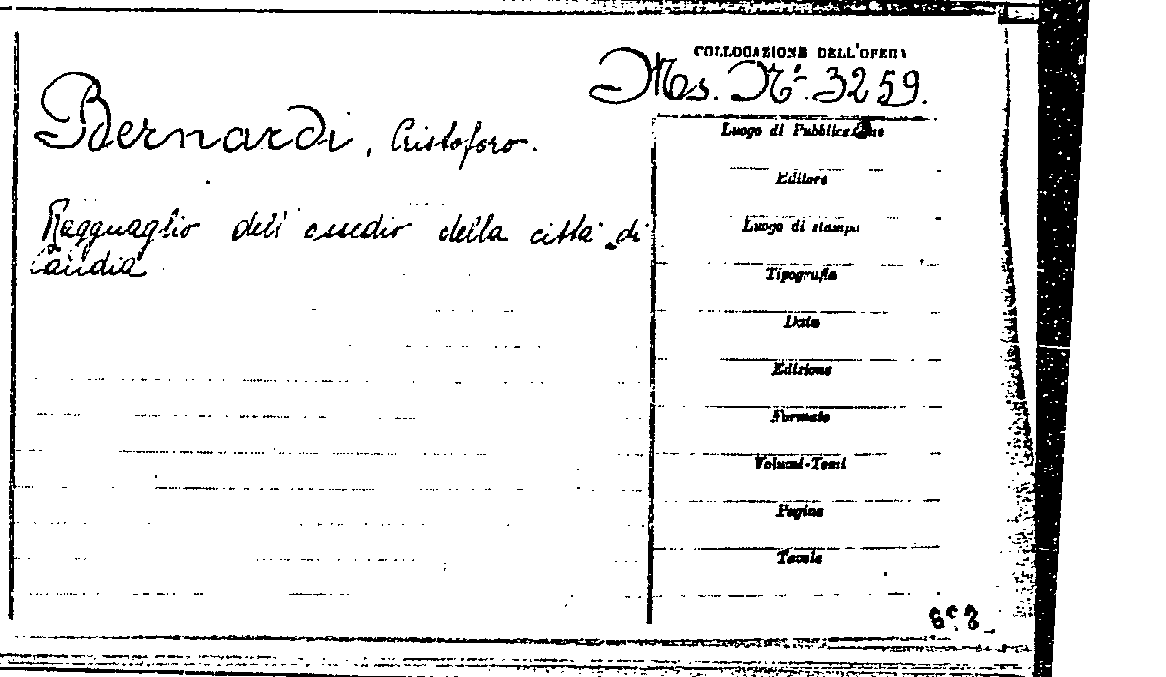 COLLOCAZIONE DELL'OPERA
Ms. Nº. 3259.
Bernardi, Cristoforo.
Ragguaglio dell'assedio della città di
Candia
Luogo di Pubblicazione
Editore
Luogo di stampa
Tipografia
Data
Edizione
Formato
Volumi-Tomi
Pagine
Tavole